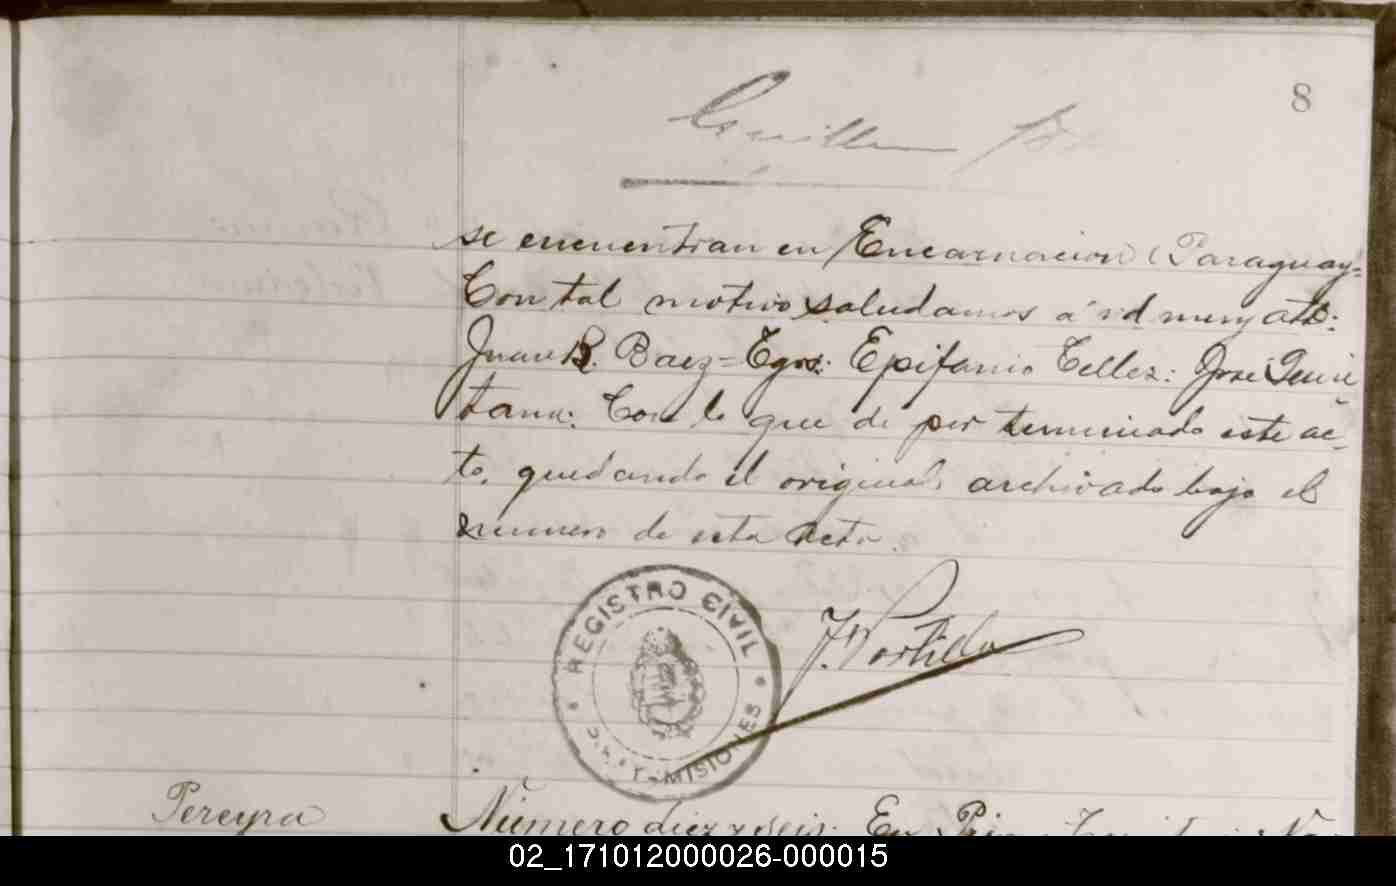 8
Guillermo
se encuentran en Encarnacion (Paraguay=
Con tal motivo saludamos á Vd muy att:
Juan B. Baez=Tgos: Epifanio Tellez: José Quin
tana: Con lo que di por terminado este ac-
to, quedando el original archivado bajo el
numero de esta acta.
REGISTRO CIVIL
MISIONES
J. Portillo
Pereyra
Número diez y seis. En
02_171012000026-000015